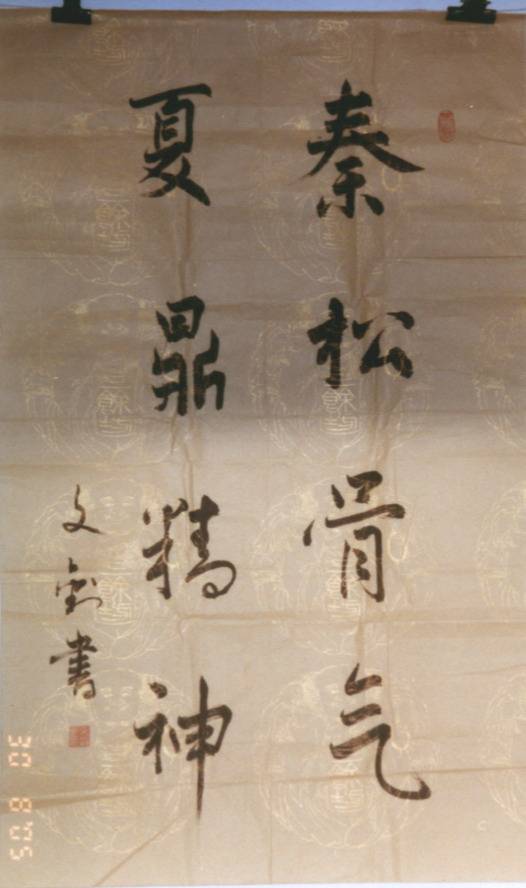 秦松骨气
夏鼎精神
文剑书
30 8'05